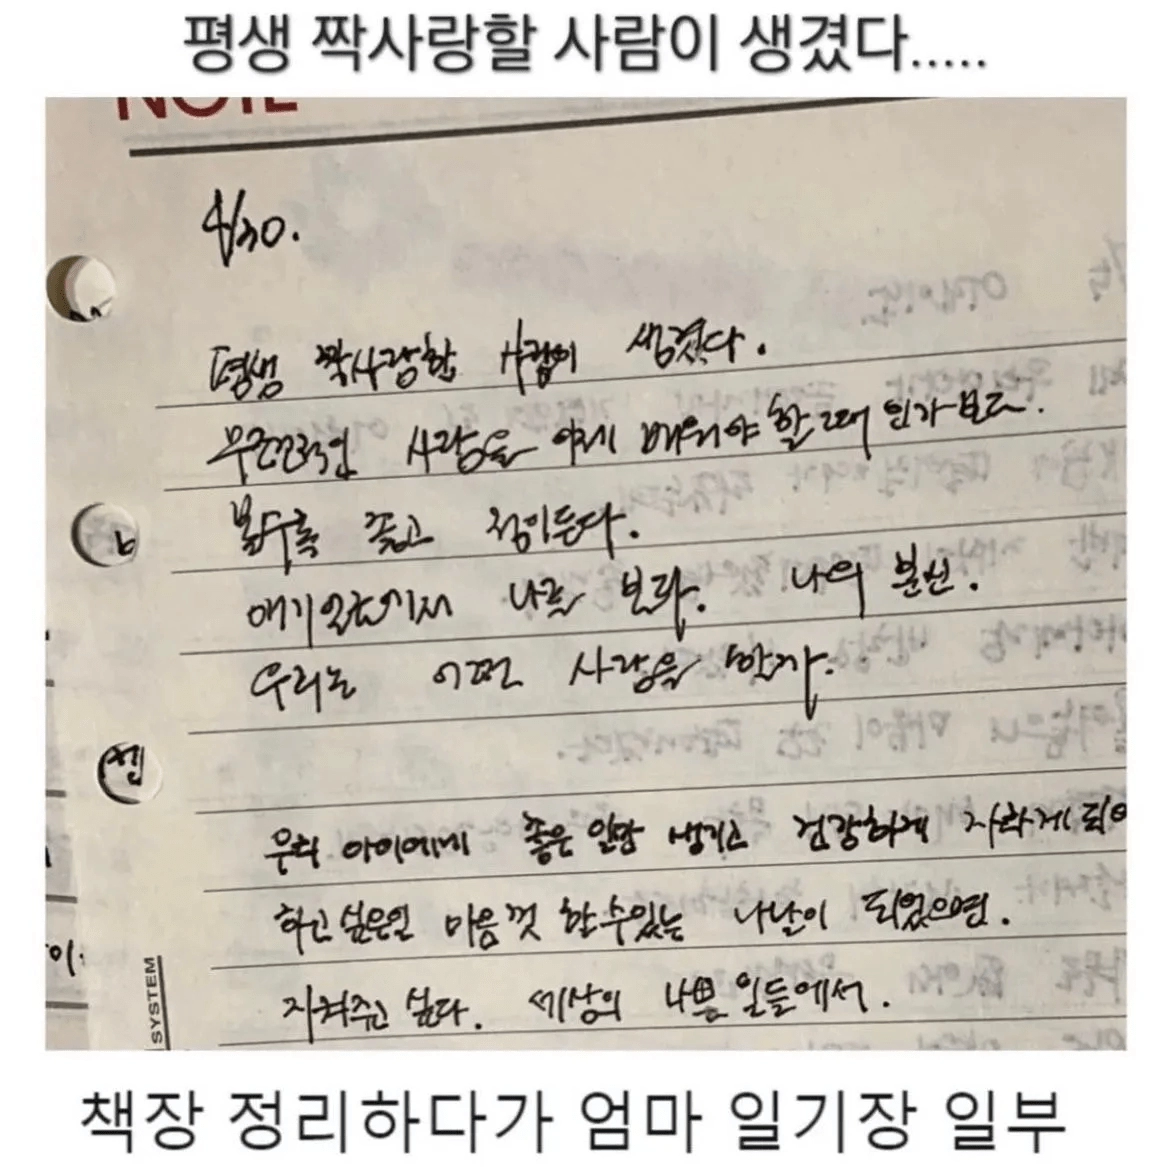 평생 짝사랑할 사람이 생겼다.....
NOTE
4/30.
평생 짝사랑할 사람이 생겼다.
무조건적인 사랑을 이제 배워야 할 때 인가보다.
볼수록 좋고 정이든다.
애기 얼굴에서 나를 보라. 나의 분신.
우리는 어떤 사랑을 할까.
우리 아이에게 좋은 일만 생기고 건강하게 자라게 되어
하고 싶은일 마음껏 할수있는 나날이 되었으면.
지켜주고 싶다. 세상의 나쁜 일들에서.
SYSTEM
책장 정리하다가 엄마 일기장 일부